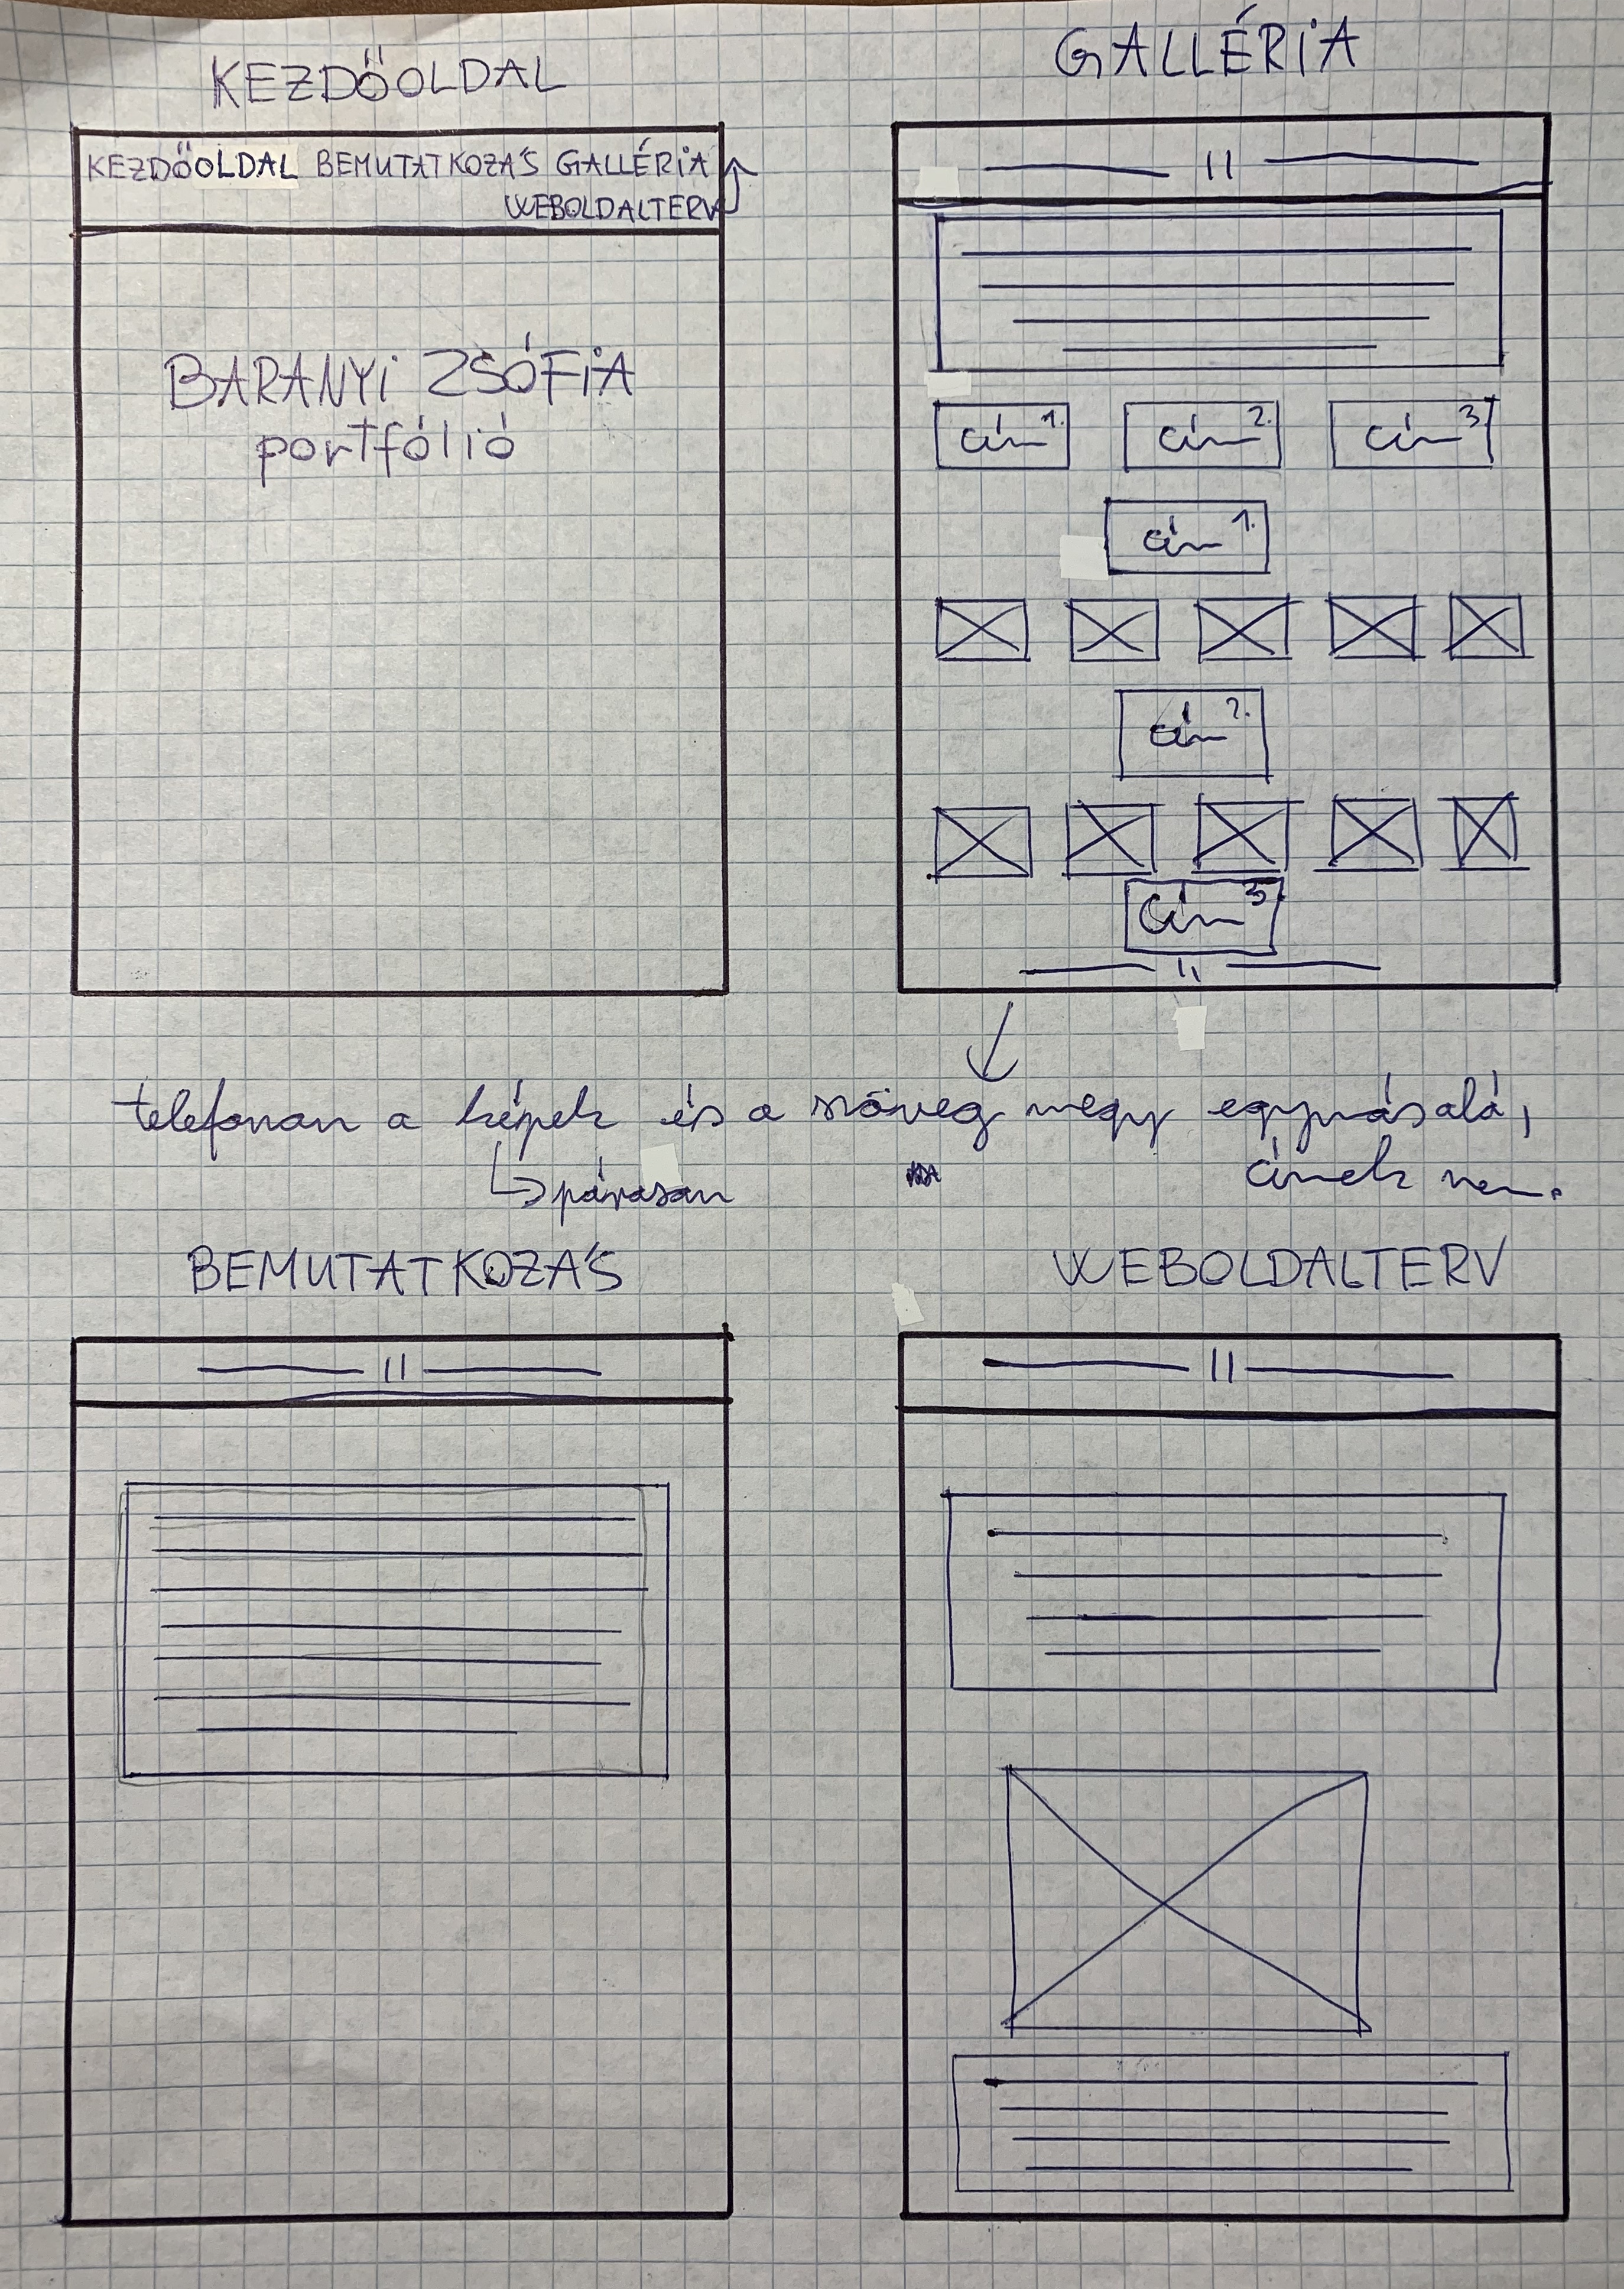 KEZDŐOLDAL
KEZDŐOLDAL BEMUTATKOZÁS GALLÉRIA
WEBOLDALTERV
BARANYI ZSÓFIA
portfólió
GALLÉRIA
||
cím 1. cím 2. cím 3.
cím 1.
cím 2.
cím 3.
||
telefonon a képek és a szöveg megy egymásalá,
párosan címek nem.
BEMUTATKOZÁS
||
WEBOLDALTERV
||